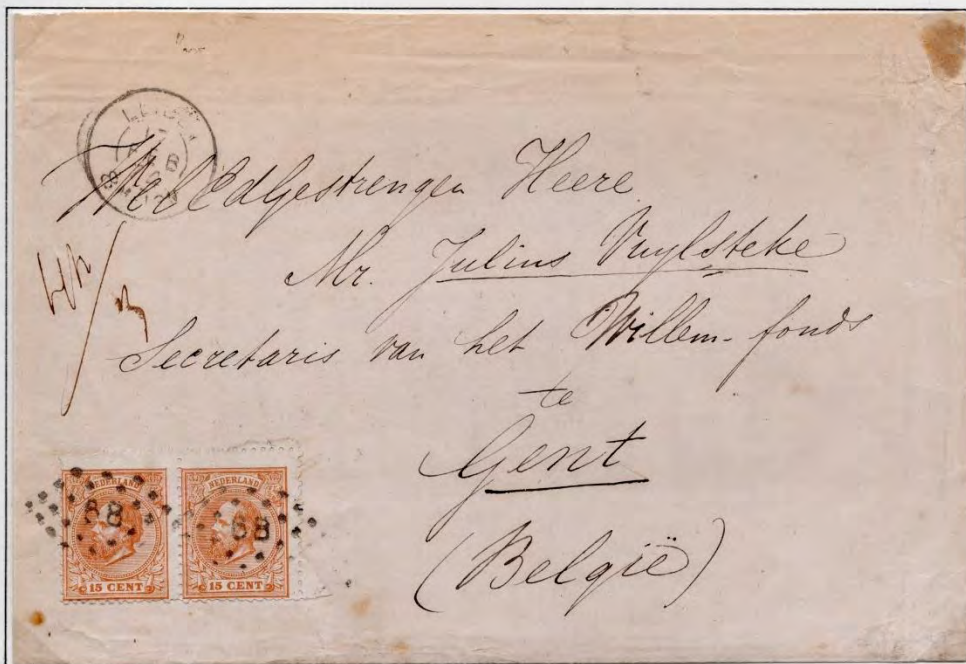 LEIDEN
WelEdlgestrengen Heere
Mr. Julius Vuylsteke
Secretaris van het Willem-fonds
te
Gent
(België)
NEDERLAND NEDERLAND
68 68
15 CENT 15 CENT